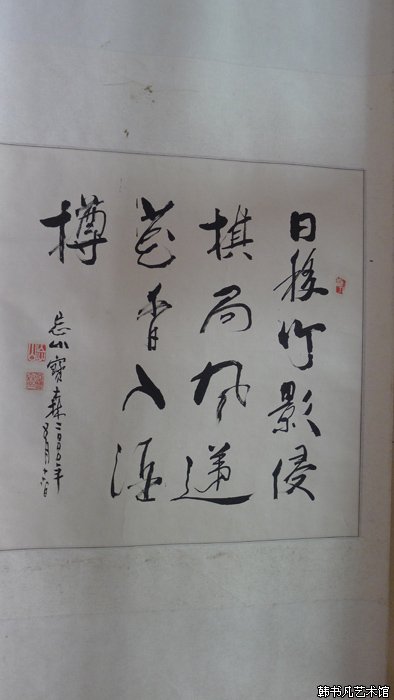 日移竹影侵
棋局風遞
花香入酒
樽
寶森二〇〇〇年
韩书凡艺术馆